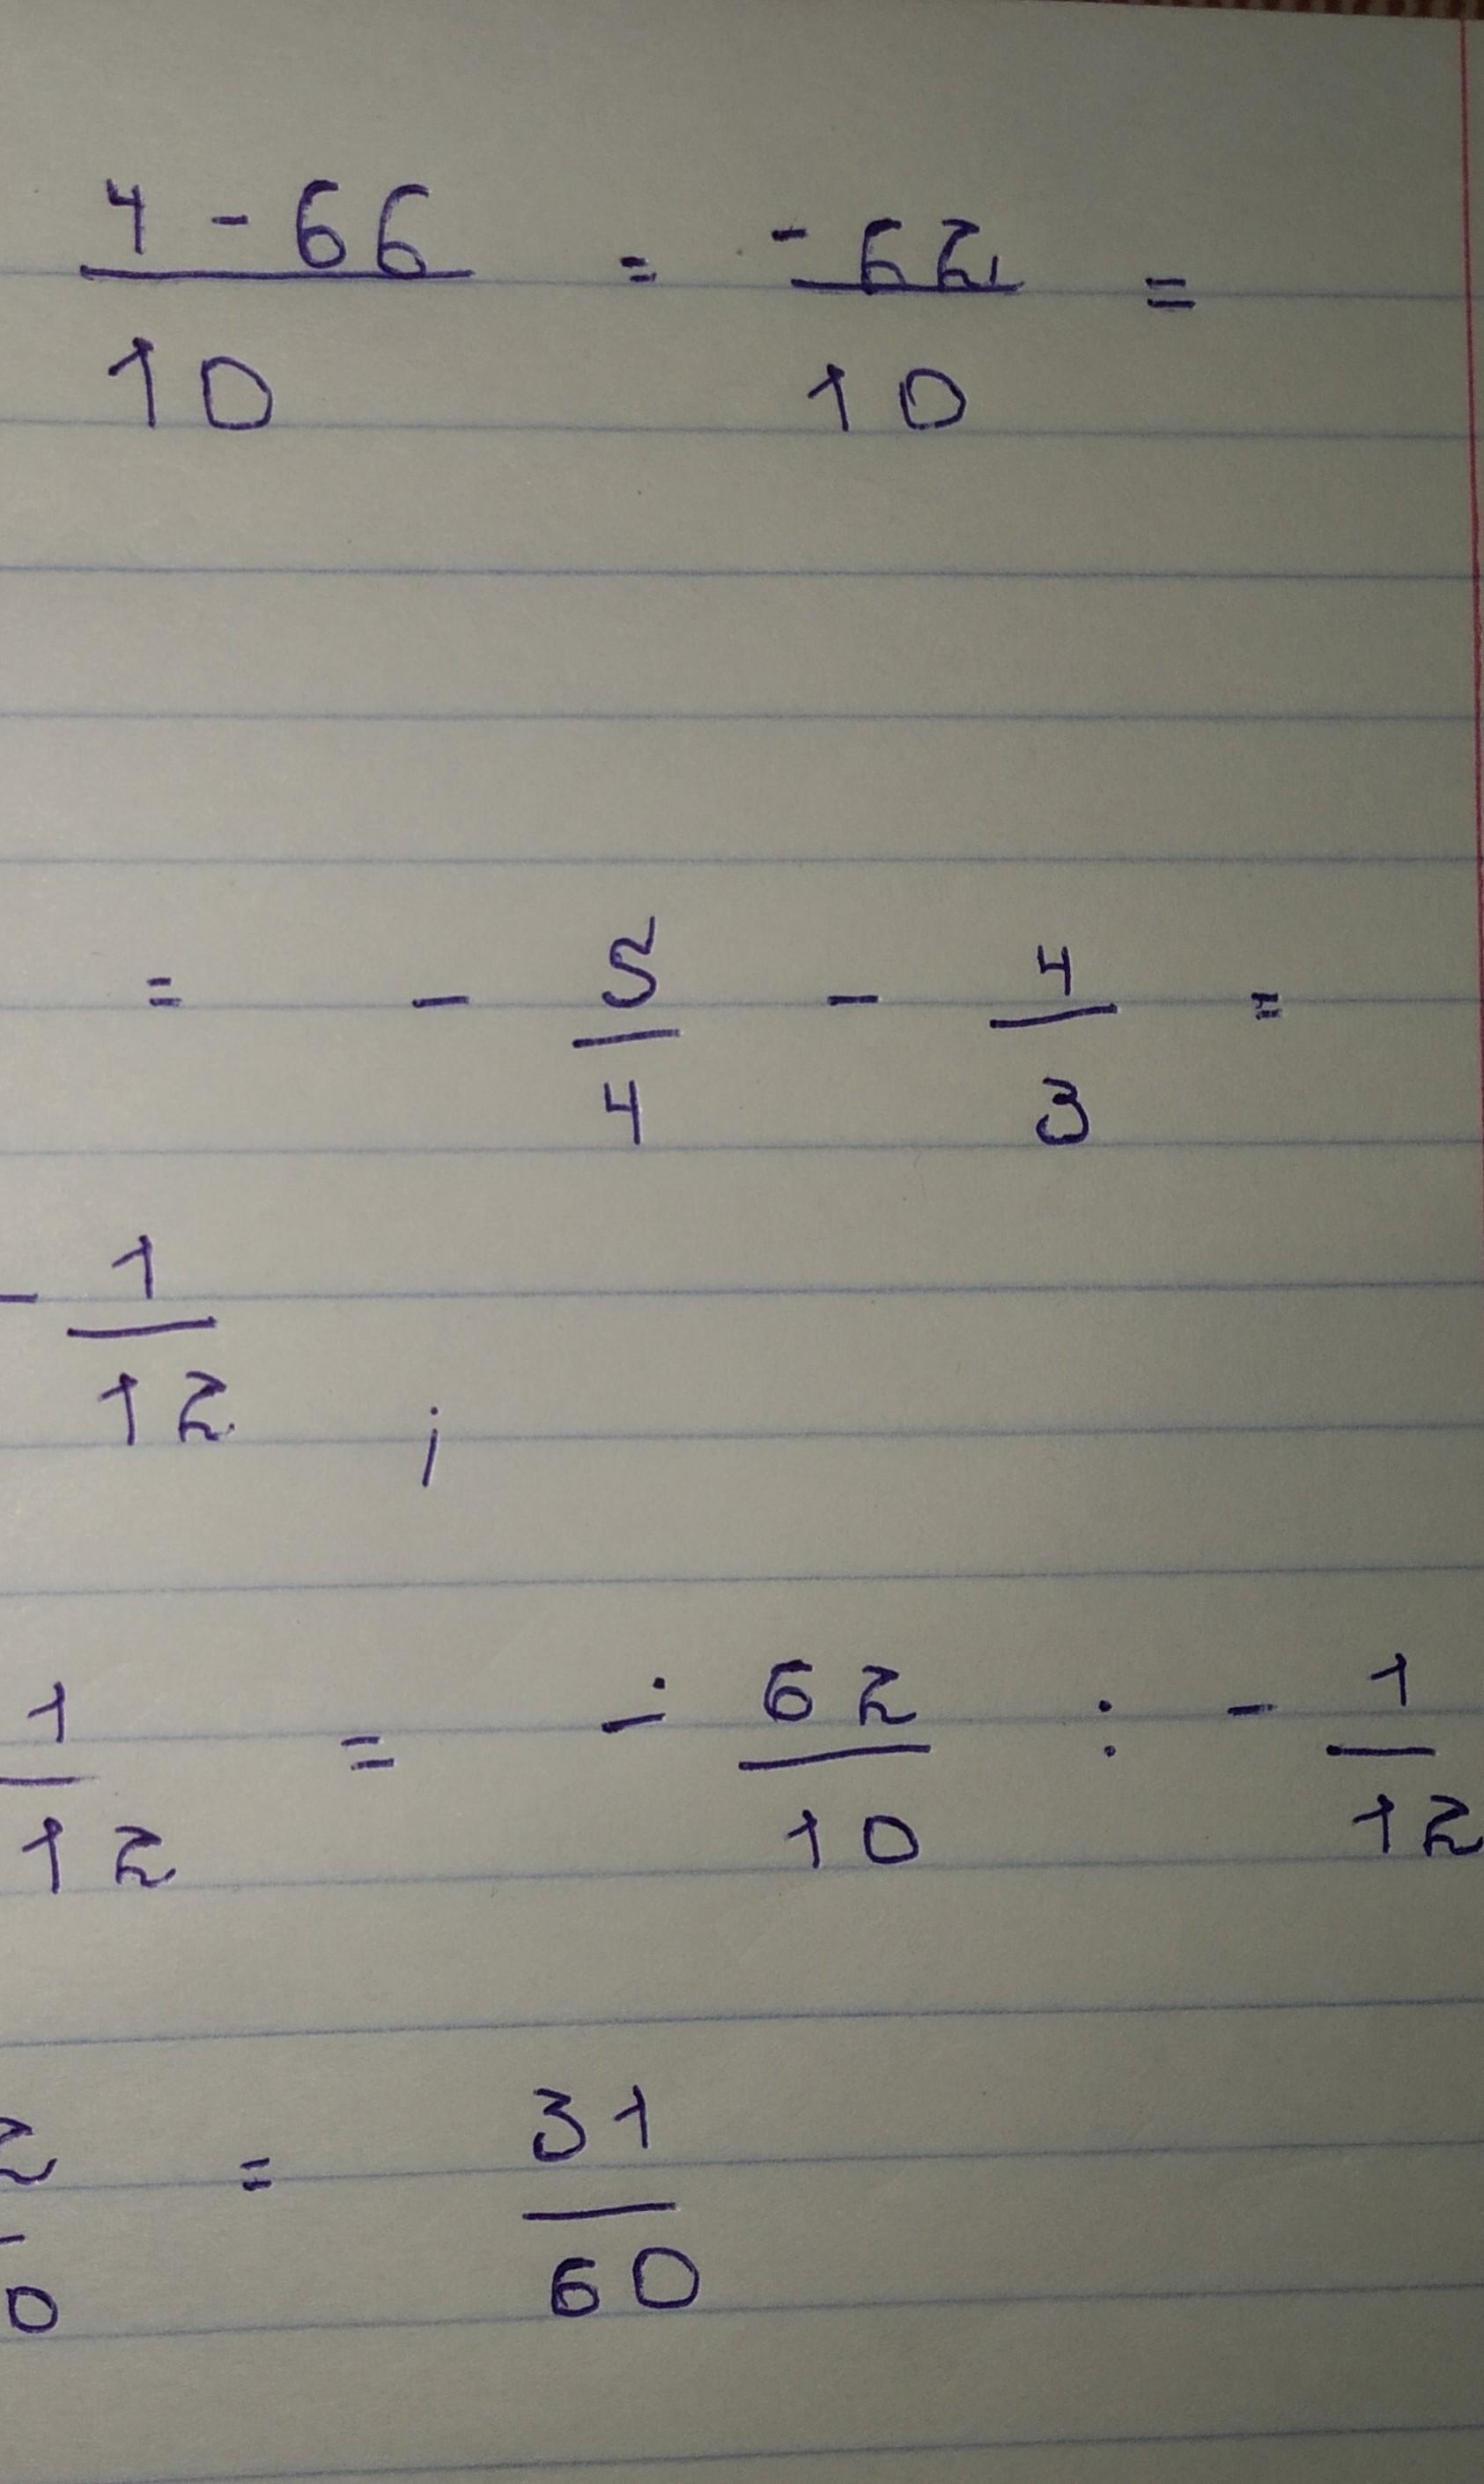 4 - 66 / 10 = - 62 / 10 =
= - 5/4 - 4/3 =
- 1/12 ;
1/12 = - 62/10 : - 1/12
2/0 = 31/60